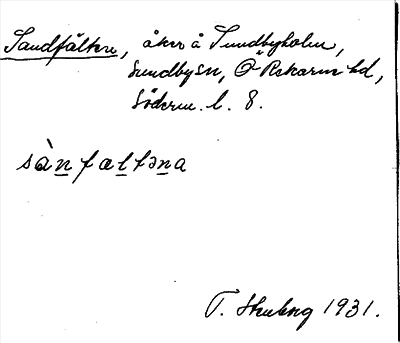 Sandfälten, åker å Sundbyholm,
Sundby sn, Ö Rekarne hd,
Söderm. l. 8.
sànfæltəna
T. 1931.